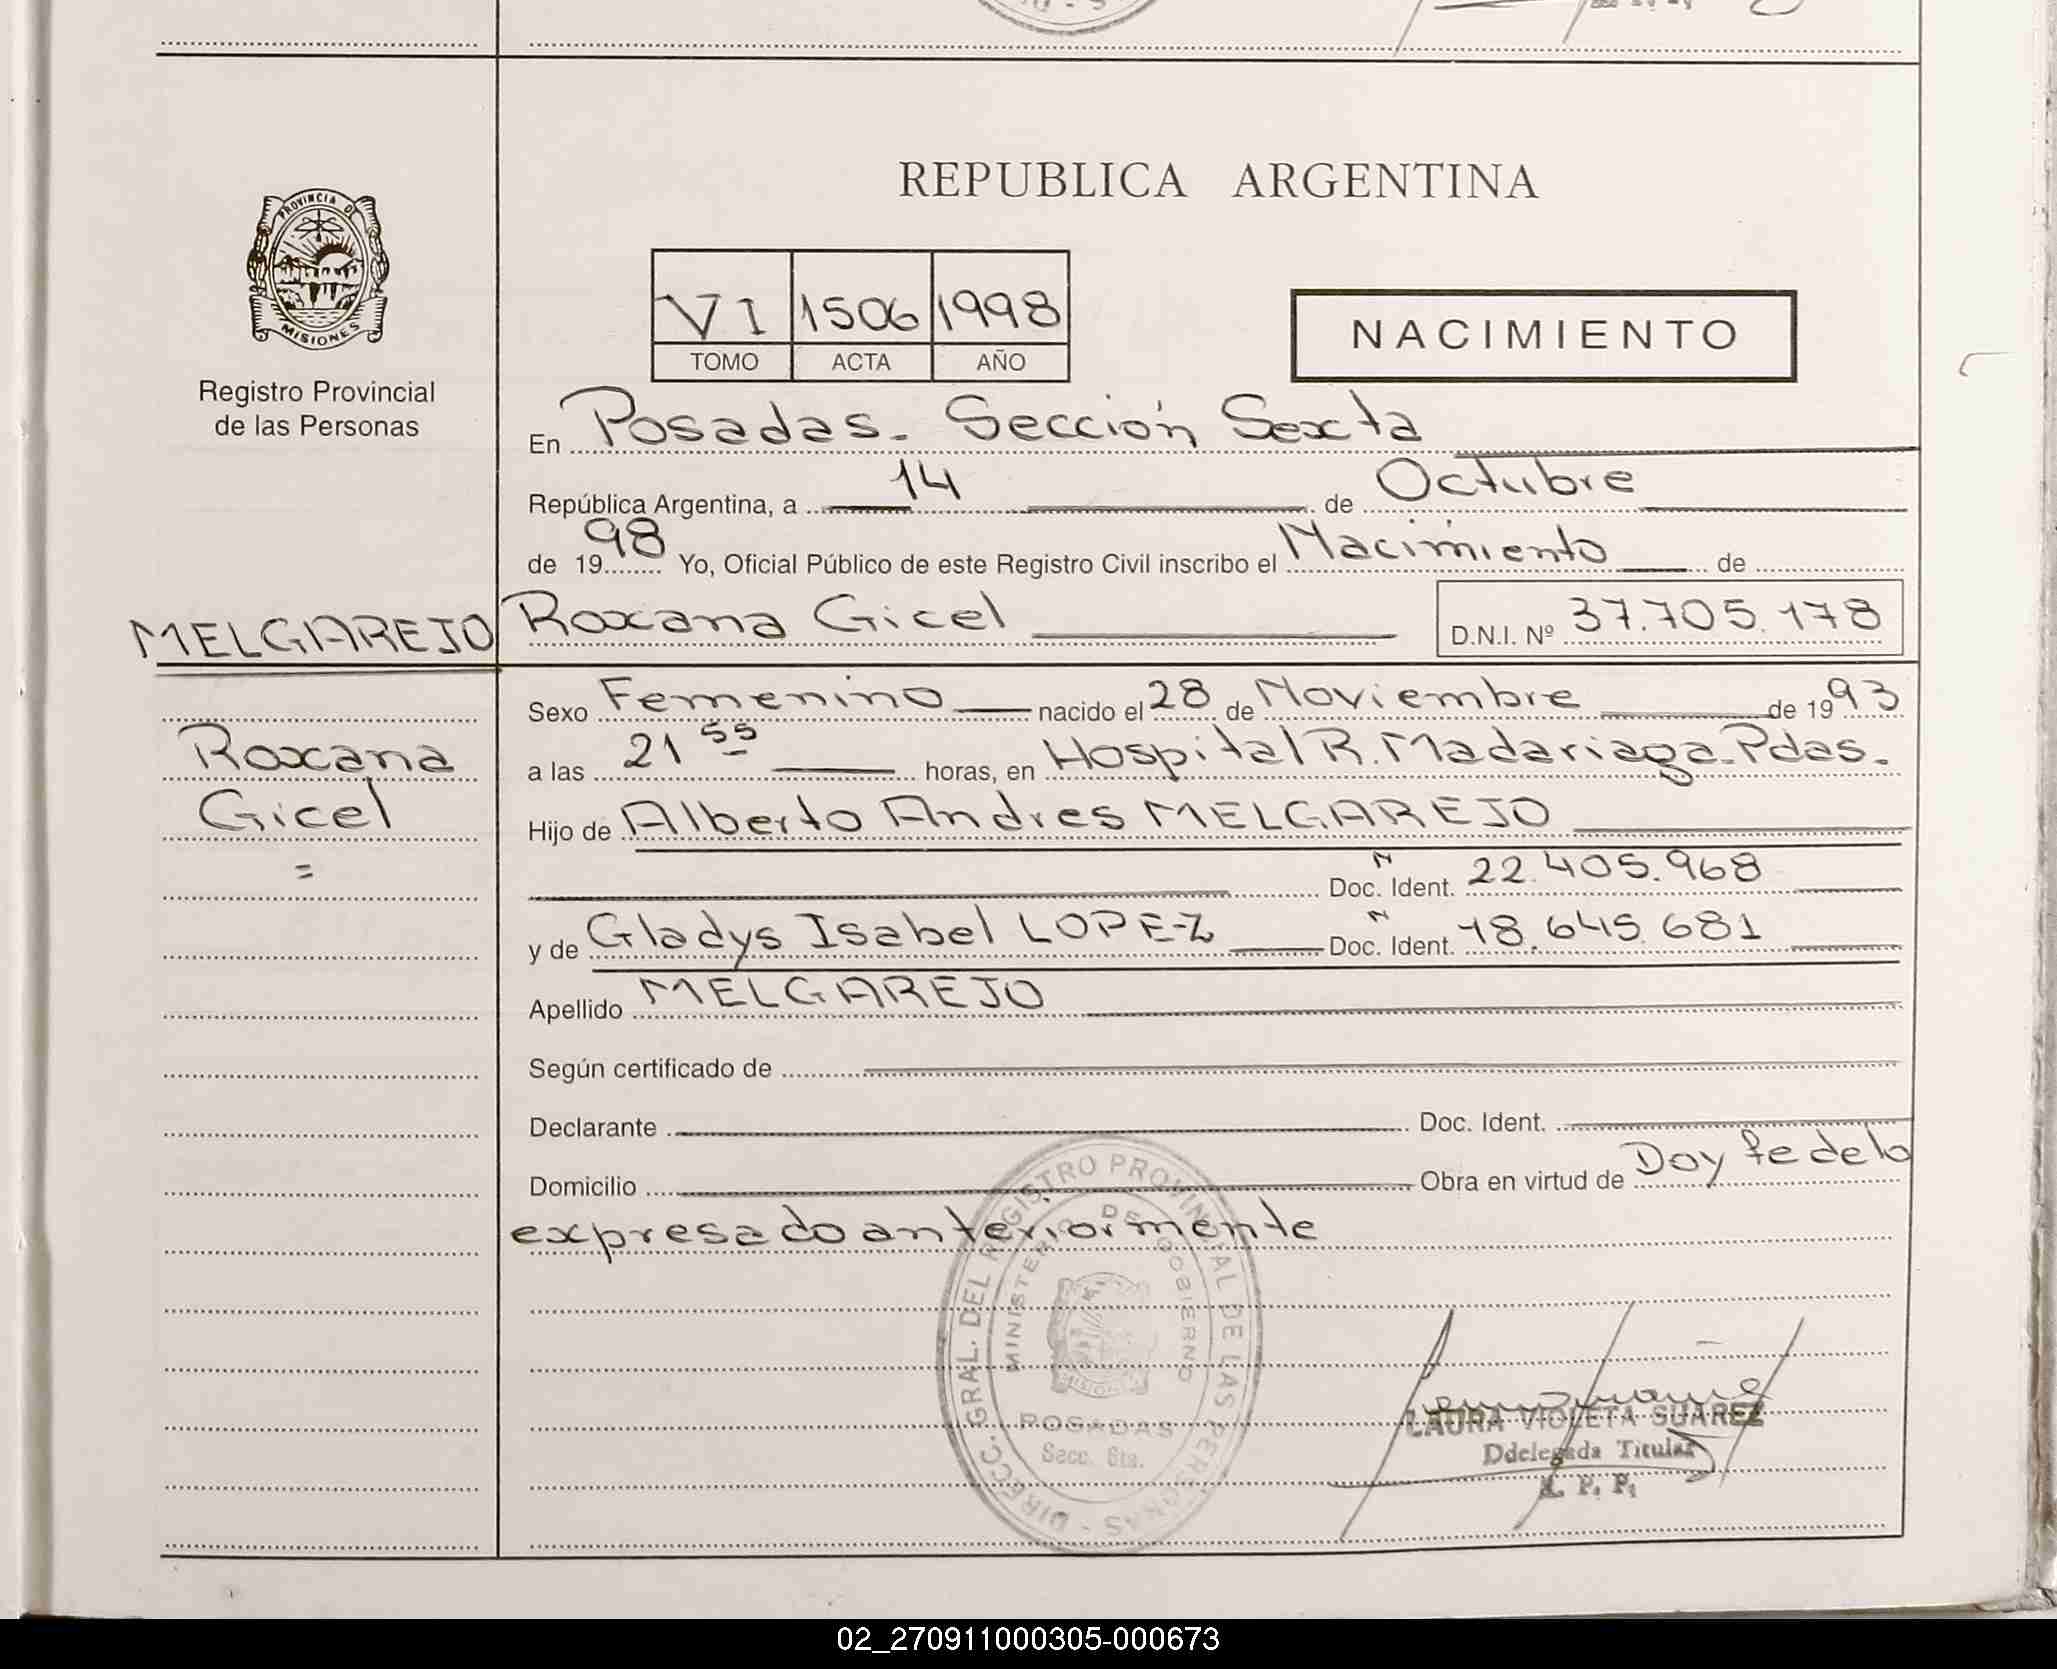 REPUBLICA ARGENTINA
PROVINCIA DE
MISIONES
Registro Provincial
de las Personas
VI 1506 1998
TOMO ACTA AÑO
NACIMIENTO
En Posadas. Sección Sexta
República Argentina, a 14 de Octubre
de 1998 Yo, Oficial Público de este Registro Civil inscribo el Nacimiento de
MELGAREJO Roxana Gicel D.N.I. Nº 37.705.178
Sexo Femenino nacido el 28 de Noviembre de 1993
Roxana
Gicel
=
a las 21 55 horas, en Hospital R. Madariaga-Pdas.
Hijo de Alberto Andres MELGAREJO
Doc. Ident. N 22.405.968
y de Gladys Isabel LOPEZ Doc. Ident. N 18.645.681
Apellido MELGAREJO
Según certificado de
Declarante Doc. Ident.
Domicilio Obra en virtud de Doy fe de lo
expresado anteriormente
DIRECC. GRAL. DEL REGISTRO PROVINCIAL DE LAS PERSONAS
MINISTERIO DE GOBIERNO
MISIONES
POSADAS
Secc. 6ta.
LAURA VIOLETA SUAREZ
Ddelegada Titular
R. P. P.
02_270911000305-000673